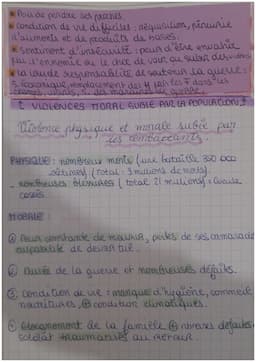 • Peur de perdre ses proches
• condition de vie difficiles : réquisition, pénurie
d'aliments et de produits de bases.
• sentiment d'insécurité : peur d'être envahie
par l'ennemie ou le choc de voir au
• la lourde responsabilité de soutenir la guerre :
économique, remplacement des H par les F dans les
↑ VIOLENCES MORAL SUBIE PAR LA POPULATION ↑
Violence physique et morale subie par
les combattants.
PHYSIQUE : nombreux morts (une bataille 350 000
victimes) (total : 9 millions de morts)
nombreuses blessures (total 21 millions) = Gueule
cassés
MORALE
① Peur constante de mourir, pertes de ses camarades
culpabilité de devoir tué.
② Durée de la guerre et nombreuses défaites.
③ Condition de vie : manque d'hygiène, commodité
nourritures, ⊕ condition climatiques.
④ éloignement de la famille ⊕ défaites.
soldat traumatisés au retour